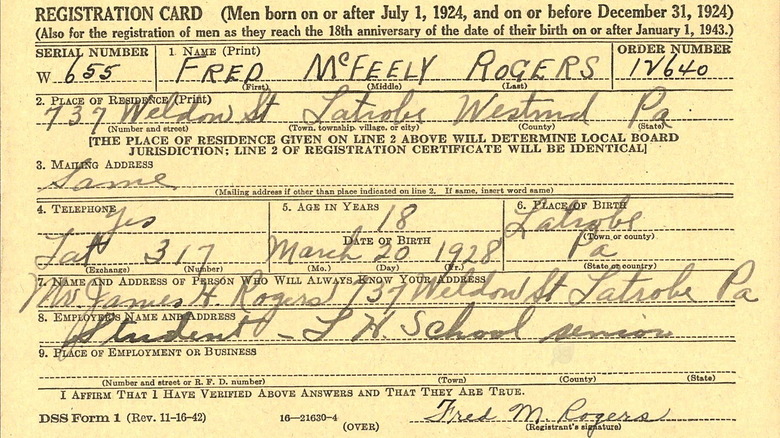 REGISTRATION CARD (Men born on or after July 1, 1924, and on or before December 31, 1924)
(Also for the registration of men as they reach the 18th anniversary of the date of their birth on or after January 1, 1943.)
SERIAL NUMBER 1. NAME (Print) ORDER NUMBER
W 655 FRED McFEELY ROGERS 12640
(First) (Middle) (Last)
2. PLACE OF RESIDENCE (Print)
737 Weldon St Latrobe Westmd Pa
(Number and street) (Town, township, village, or city) (County) (State)
[THE PLACE OF RESIDENCE GIVEN ON LINE 2 ABOVE WILL DETERMINE LOCAL BOARD
JURISDICTION; LINE 2 OF REGISTRATION CERTIFICATE WILL BE IDENTICAL]
3. MAILING ADDRESS
Same
(Mailing address if other than place indicated on line 2. If same, insert word same)
4. TELEPHONE 5. AGE IN YEARS 6. PLACE OF BIRTH
yes 18 Latrobe
DATE OF BIRTH (Town or county)
Lat 317 March 20 1928 Pa
(Exchange) (Number) (Mo.) (Day) (Yr.) (State or country)
7. NAME AND ADDRESS OF PERSON WHO WILL ALWAYS KNOW YOUR ADDRESS
James H. Rogers 737 Weldon St Latrobe Pa
8. EMPLOYER'S NAME AND ADDRESS
Student - L H. School senior
9. PLACE OF EMPLOYMENT OR BUSINESS
(Number and street or R. F. D. number) (Town) (County) (State)
I AFFIRM THAT I HAVE VERIFIED ABOVE ANSWERS AND THAT THEY ARE TRUE.
DSS Form 1 (Rev. 11-16-42) 16—21630-4 Fred M. Rogers
(OVER) (Registrant's signature)